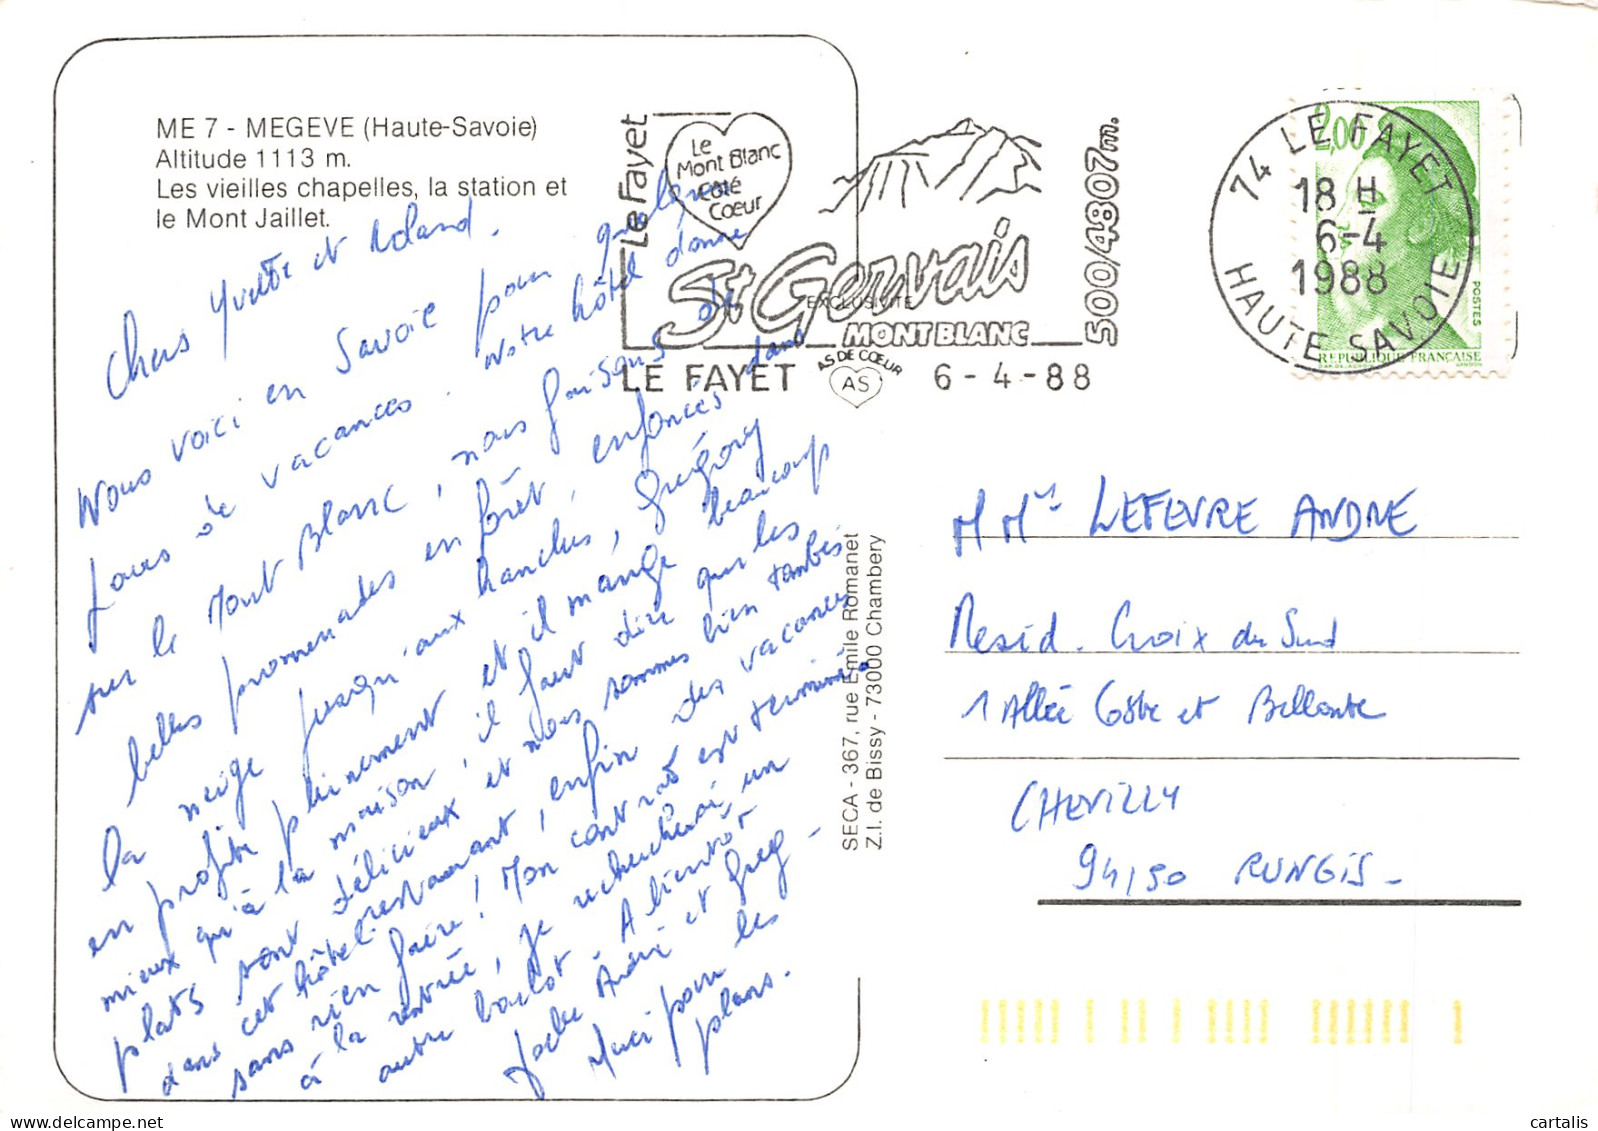 ME 7 - MEGEVE (Haute-Savoie)
Altitude 1113 m.
Les vieilles chapelles, la station et
le Mont Jaillet.
Chers Yvette et Roland.
Nous voici en Savoie pour quelques
jours de vacances. Notre hôtel donne
sur le Mont Blanc, nous faisons de
belles promenades en forêt, enfoncés dans
la neige jusqu'aux hanches, Grégory
en profite pleinement et il mange beaucoup
mieux qu'à la maison, il faut dire que les
plats sont délicieux et nous sommes bien tombés
dans cet hôtel restaurant, enfin des vacances
sans rien faire! Mon contrat est terminé
à la rentrée, je rechercherai un
autre boulot. A bientôt
Joelle André et Greg -
Merci pour les
plans.
Le Fayet
Le
Mont Blanc
Côté
Cœur
St Gervais
MONT BLANC
500/4807m.
LE FAYET 6-4-88
EXCLUSIVITE
AS DE CŒUR
AS
74 LE FAYET
18 H
6-4
1988
HAUTE SAVOIE
2,00
POSTES
REPUBLIQUE FRANÇAISE
SECA - 367, rue Emile Romanet
Z.I. de Bissy - 73000 Chambery
M Mme LEFEVRE ANDRE
Resid. Croix du Sud
1 Allée Coste et Bellonte
CHEVILLY
94150 RUNGIS -
cartalis